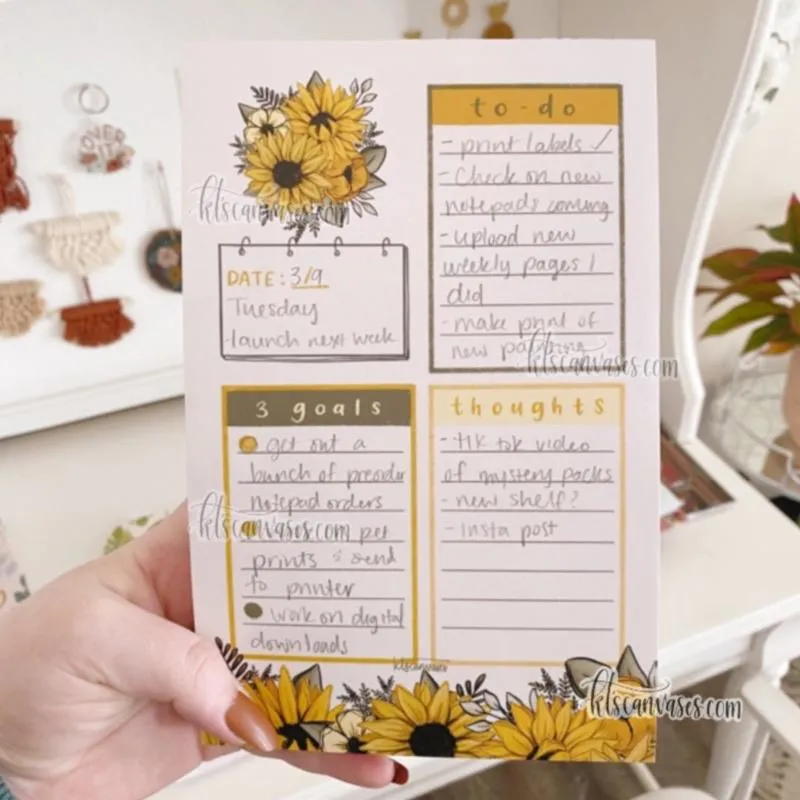 OVER IT
ktscanvases.com
DATE: 3/9
Tuesday
-launch next week
to-do
- print labels ✓
- Check on new
notepads coming
- upload new
weekly pages I
did
- make print of
new
ktscanvases.com
3 goals
get out a
bunch of preorder
notepad orders
ktscanvases.com pet
prints & send
to printer
work on digital
downloads
thoughts
- tik tok video
of mystery packs
- new shelf?
- Insta post
ktscanvases
ktscanvases.com